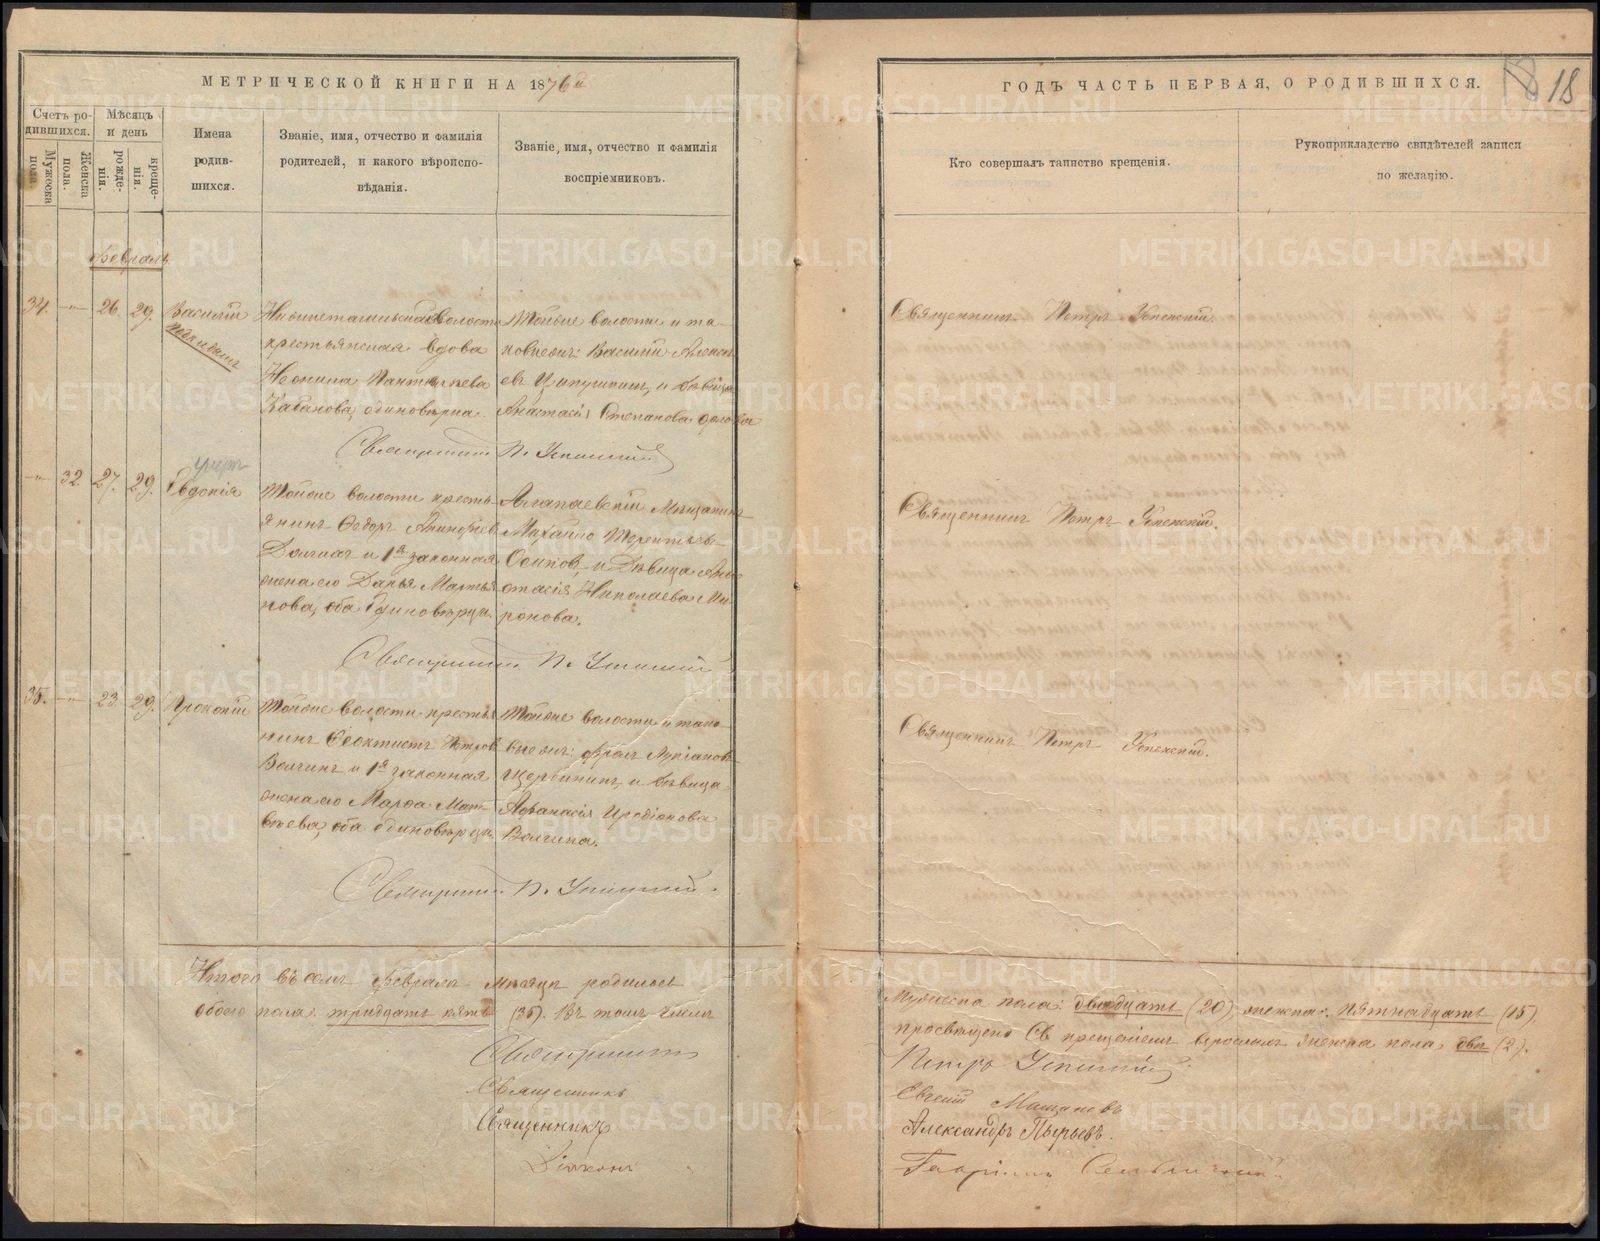 МЕТРИЧЕСКОЙ КНИГИ НА 1876й
Счетъ ро-
дившихся.
Мужеска
пола.
Женска
пола.
Мѣсяцъ
и день
рожде-
нія.
креще-
нія.
Имена
родив-
шихся.
Званіе, имя, отчество и фамилія
родителей, и какого вѣроиспо-
вѣданія.
Званіе, имя, отчество и фамилія
воспріемниковъ.
Февраль
34. 26. 29. Василій
крестьянская вдова
Неонила
Кабанова, единовѣрка.
Тойже волости и та-
ковыежъ: Василій
и дѣвица
Анастасія Степанова
Священникъ П. Успенскій
32. 27. 29. Евдокія
умер
Тойже волости кресть-
янинъ Ѳедоръ
и 1й законная
жена его Дарья Мартья-
нова, оба единовѣрцы.
Алапаевскій мѣщанинъ
Михайло Терентьевъ
Осиповъ и дѣвица Ана-
стасія Николаева Ми-
ронова.
Священникъ П. Успенскій
35. 23. 29. Прокопій
Тойже волости кресть-
нинъ Ѳеоктистъ Петровъ
Волгинъ и 1й законная
жена его Марѳа Мат-
вѣева, оба единовѣрцы.
Тойже волости и тако-
выежъ: Фролъ
Щербининъ, и дѣвица
Аѳанасія Иродіонова
Волгина.
Священникъ П. Успенскій
Итого въ семъ Февралѣ мѣсяцѣ родилось
обоего пола: тридцать пять (35). Въ томъ числѣ
Священникъ
Священникъ
Священникъ
Діаконъ
ГОДЪ ЧАСТЬ ПЕРВАЯ, О РОДИВШИХСЯ.
18
Кто совершалъ таинство крещенія.
Рукоприкладство свидѣтелей записи
по желанію.
Священникъ Петръ Успенскій.
Священникъ Петръ Успенскій.
Священникъ Петръ Успенскій.
Мужеска пола: двадцать (20) женска: пятнадцать (15).
просвѣщено Св крещеніемъ взрослыхъ женска пола: двѣ (2).
Петръ Успенскій
Евгеній
Александръ Пырьевъ.
Гавріилъ
METRIKI.GASO-URAL.RU